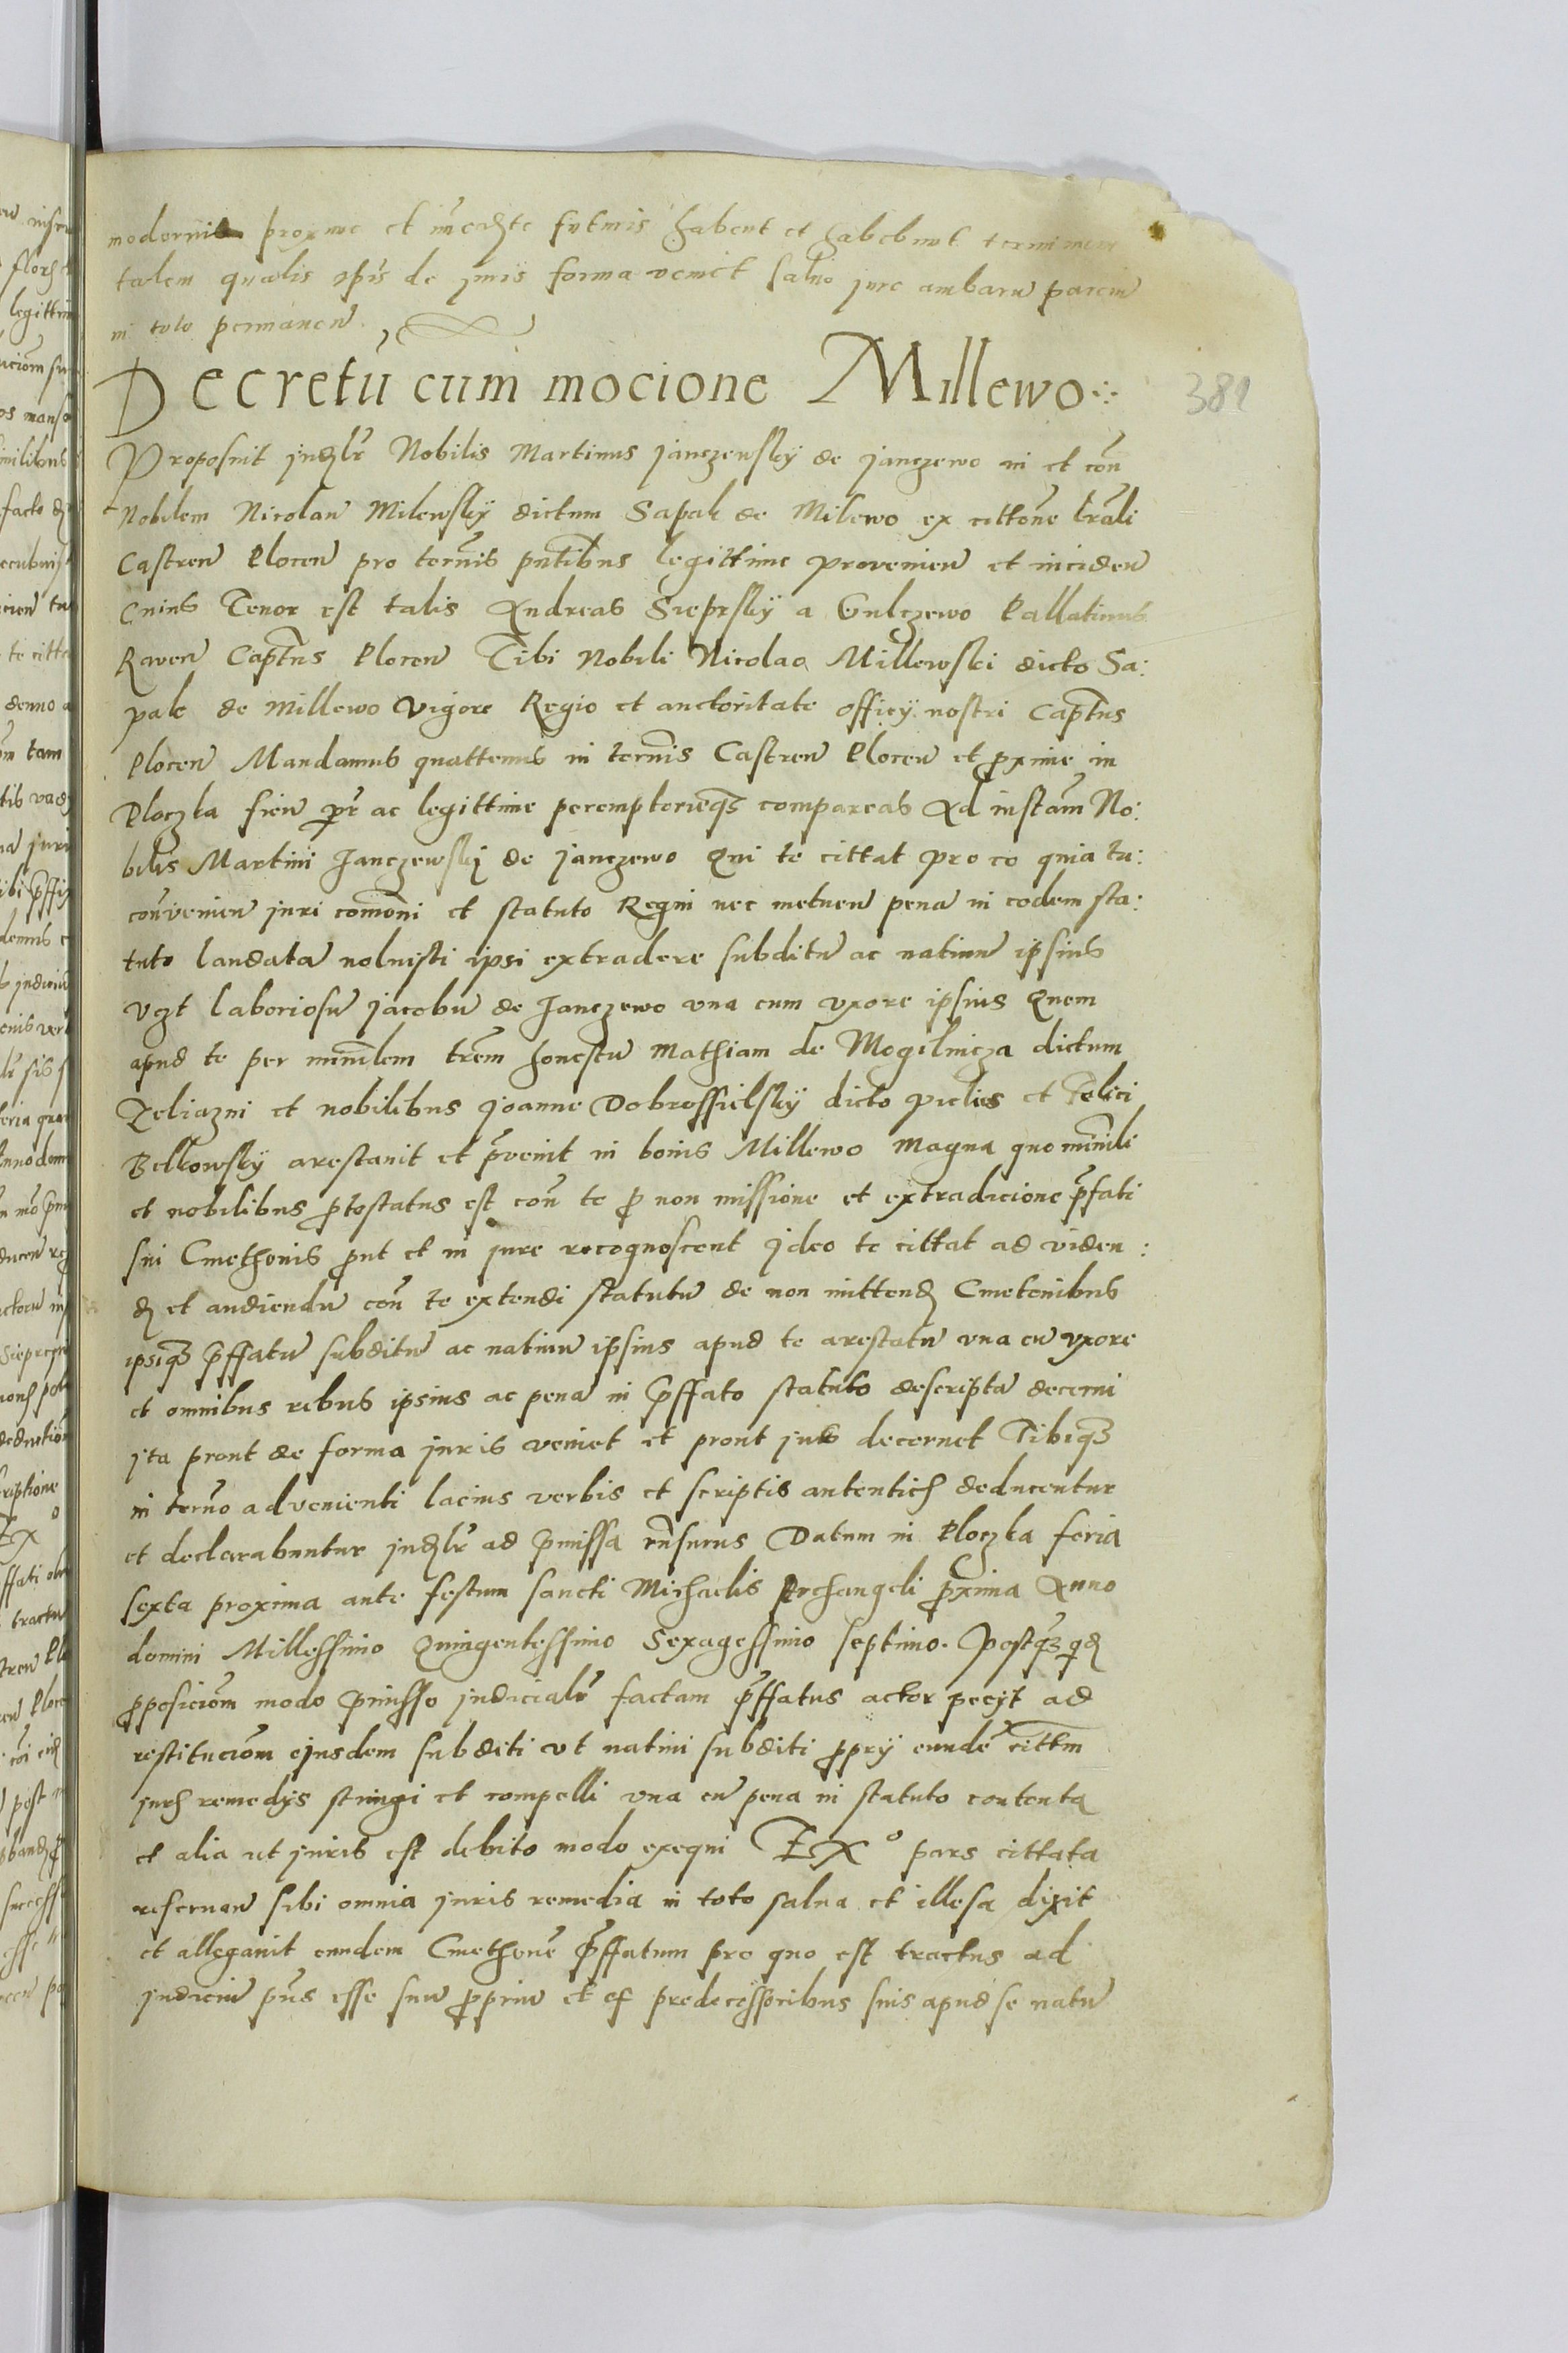 modernis proxime et imediate futuris habent et habebunt terminum
talem qualis ipis de juris forma veniet salvo jure ambaru parciu
in toto permanen
Decretu cum mocione Millewo
381
Proposuit judlr Nobilis Martinus Janczewsky de Janczewo in et con
Nobilem Nicolau Milewsky dictum Sapak de Milewo ex cittone lrali
Castren Plocen pro termis pntibus legittime provenien et inciden
Cuius Tenor est talis Andreas Sieprsky a Gulczewo Pallatinus
Raven Captnus Plocen Tibi Nobili Nicolao Millewski dicto Sa:
pak de Millewo Vigore Regio et auctoritate officy nostri Captnus
Plocen Mandamus quattenus in termis Castren Plocen et proxime in
Ploczka fien pr ac legittime peremptorieqz compareas Ad instam No:
bilis Martini Janczewskj de Janczewo Qui te cittat pro eo quia tu:
convenien juri comoni et statuto Regni nec metuen pena in eodem sta:
tuto laudata noluisti ipsi extradere subditu ac nativu ipsius
Vczt laboriosu Jacobu de Janczewo una cum uxore ipsius Quem
apud te per minilem trem honestu Mathiam de Mogilnicza dictum
Zeliazni et nobilibus Joanne Dobrossielsky dicto pielies et Felici
Belkowsky arestavit et pvenit in bonis Millewo Magna quo minili
et nobilibus ptostatus est con te p non missione et extradicione pfati
sui Cmethonis put et in jure recognoscent Jdeo te cittat ad viden:
d et audiendu con te extendi statutu de non mittend Cmetonibus
ipsiqz pffatu subditu ac nativu ipsius apud te arestatu una cu uxore
et omnibus rebus ipsius ac pena in pffato statuto descripta decerni
jta prout de forma juris veniet et prout jus decernet Tibiqz
in termo advenienti lacius verbis et scriptis autenticis deducentur
et declarabuntur judlr ad pmissa rnsurus Datum in Ploczka feria
sexta proxima ante festum sancti Michaelis Archangeli pxima Anno
domini Millessimo Quingentessimo Sexagessimo septimo. Postqz qd
pposiciom modo pmisso judicialr factam pffatus actor pecyt ad
restituciom ejusdem subditi ut nativi subditi ppry eunde cittm
juris remedys stringi et compelli una cu pena in statuto contenta
et alia ut juris est debito modo exequi EX o pars cittata
reservan sibi omnia juris remedia in toto salva et illesa dixit
et allegavit eundem Cmethone pffatum pro quo est tractus ad
judiciu pns esse suu ppriu et ex predecessoribus suis apud se natu